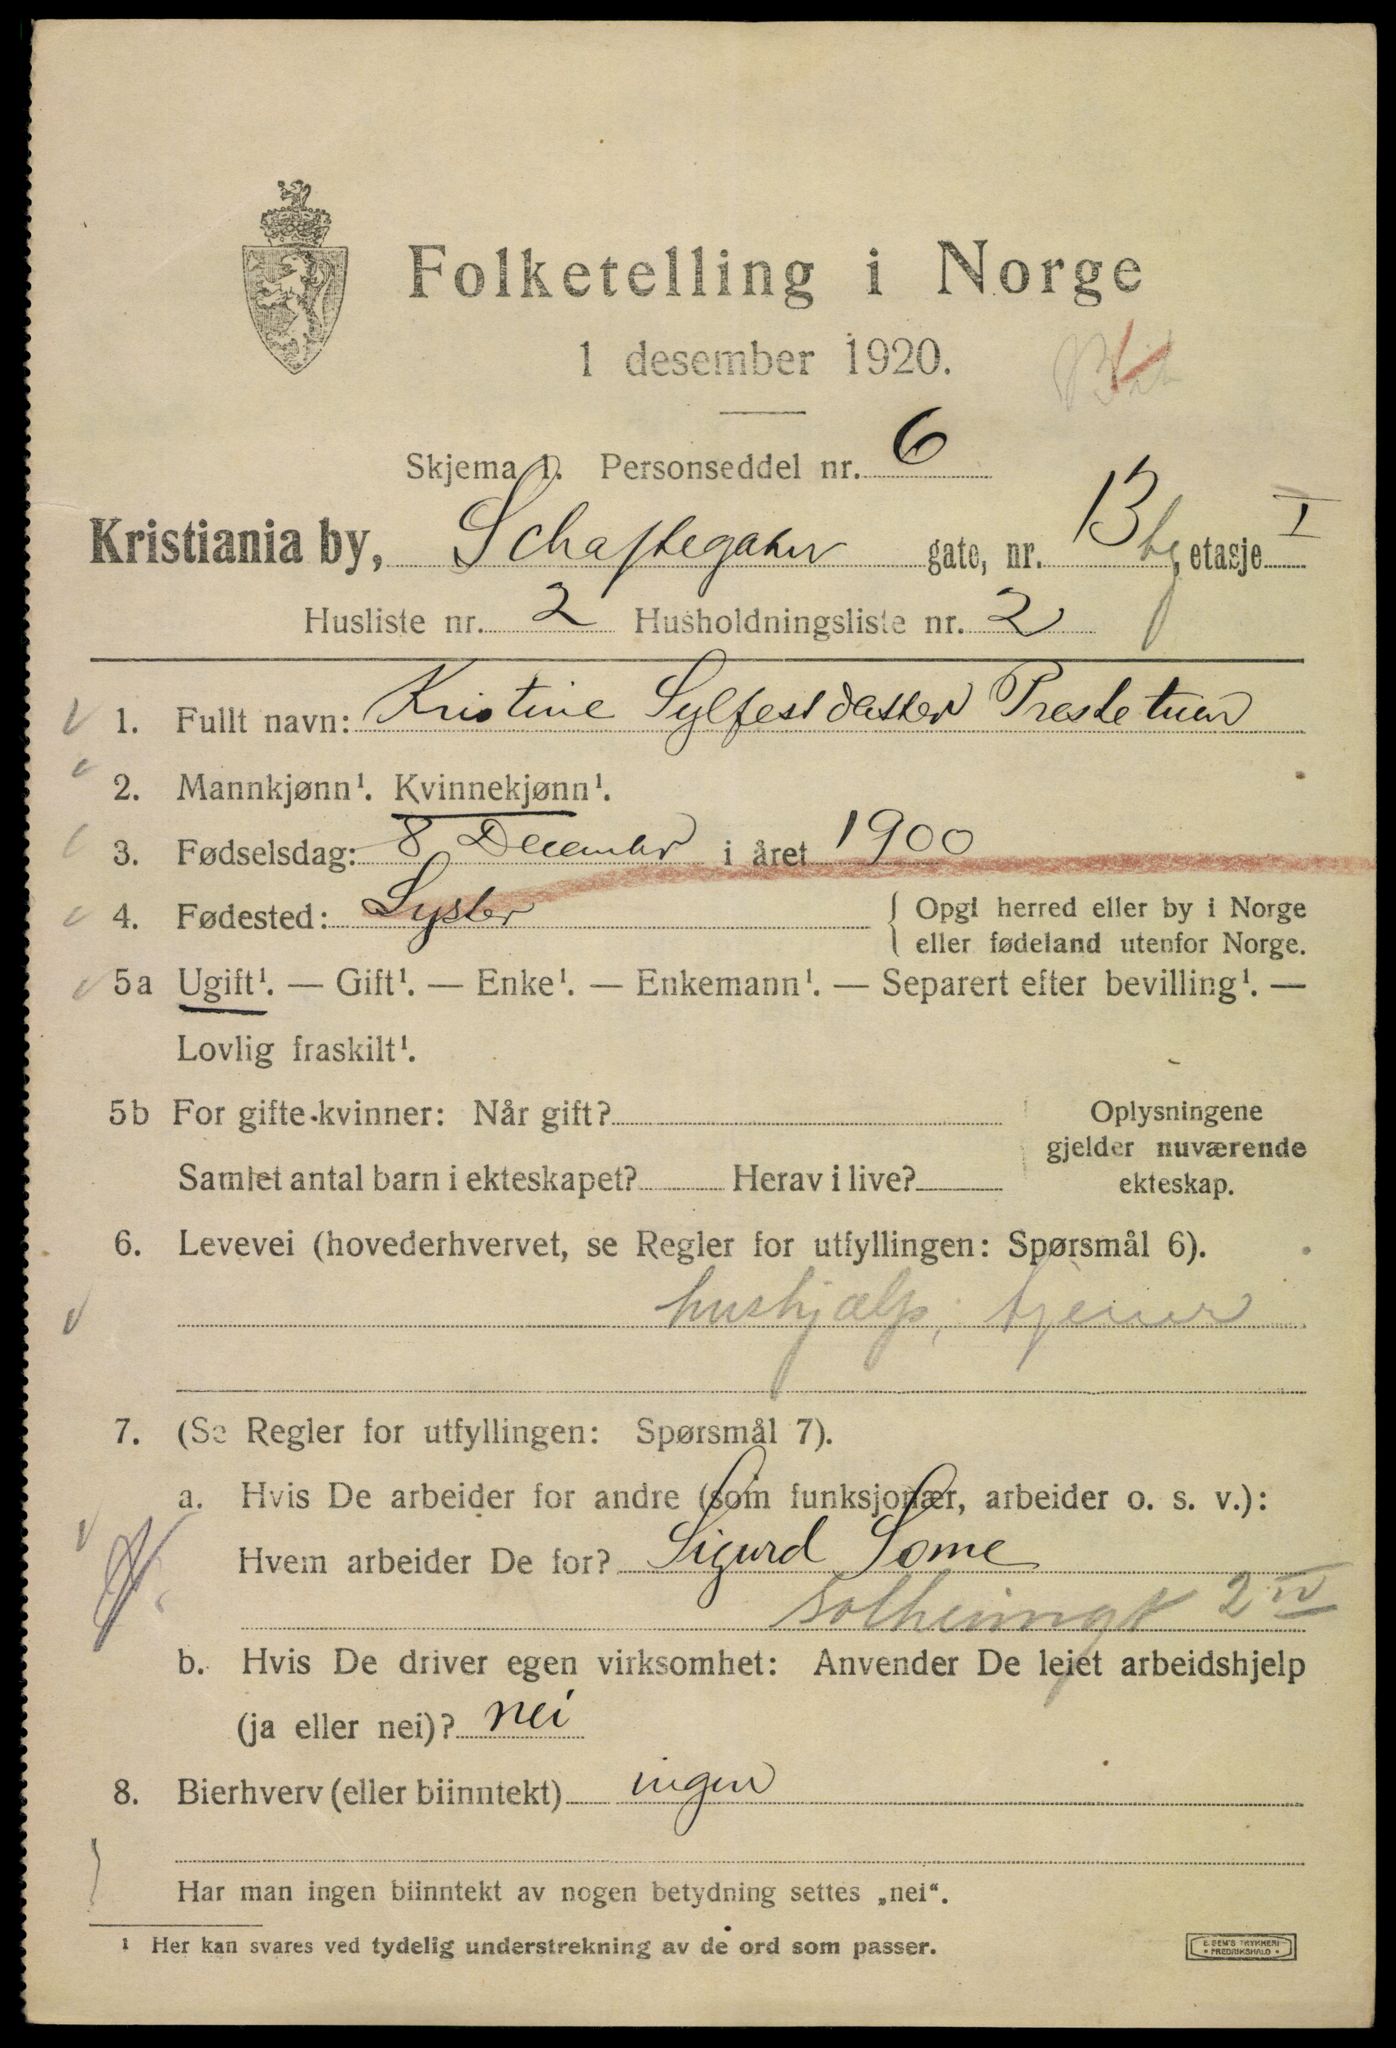 Folketelling i Norge
1 desember 1920.
Skjema 1. Personseddel nr. 6
Kristiania by, Schaftegaten gate, nr. 13 bg, etasje I
Husliste nr. 2 Husholdningsliste nr. 2
1. Fullt navn: Kristine Sylfestdatter Prestetuen
2. Mannkjønn¹. Kvinnekjønn¹.
3. Fødselsdag: 8 December i året 1900
4. Fødested: Lyster { Opgi herred eller by i Norge
eller fødeland utenfor Norge.
5a Ugift¹. — Gift¹. — Enke¹. — Enkemann¹. — Separert efter bevilling¹. —
Lovlig fraskilt¹.
5b For gifte kvinner: Når gift? Oplysningene
gjelder nuværende
Samlet antal barn i ekteskapet? Herav i live? ekteskap.
6. Levevei (hovederhvervet, se Regler for utfyllingen: Spørsmål 6).
hushjælp, tjener
7. (Se Regler for utfyllingen: Spørsmål 7).
a. Hvis De arbeider for andre (som funksjonær, arbeider o. s. v.):
Hvem arbeider De for? Sigurd Some
Solheimgt 2 IV
b. Hvis De driver egen virksomhet: Anvender De leiet arbeidshjelp
(ja eller nei)? nei
8. Bierhverv (eller biinntekt) ingen
Har man ingen biinntekt av nogen betydning settes „nei“.
¹ Her kan svares ved tydelig understrekning av de ord som passer.
E. SEM'S TRYKKERI
• FREDRIKSHALD •